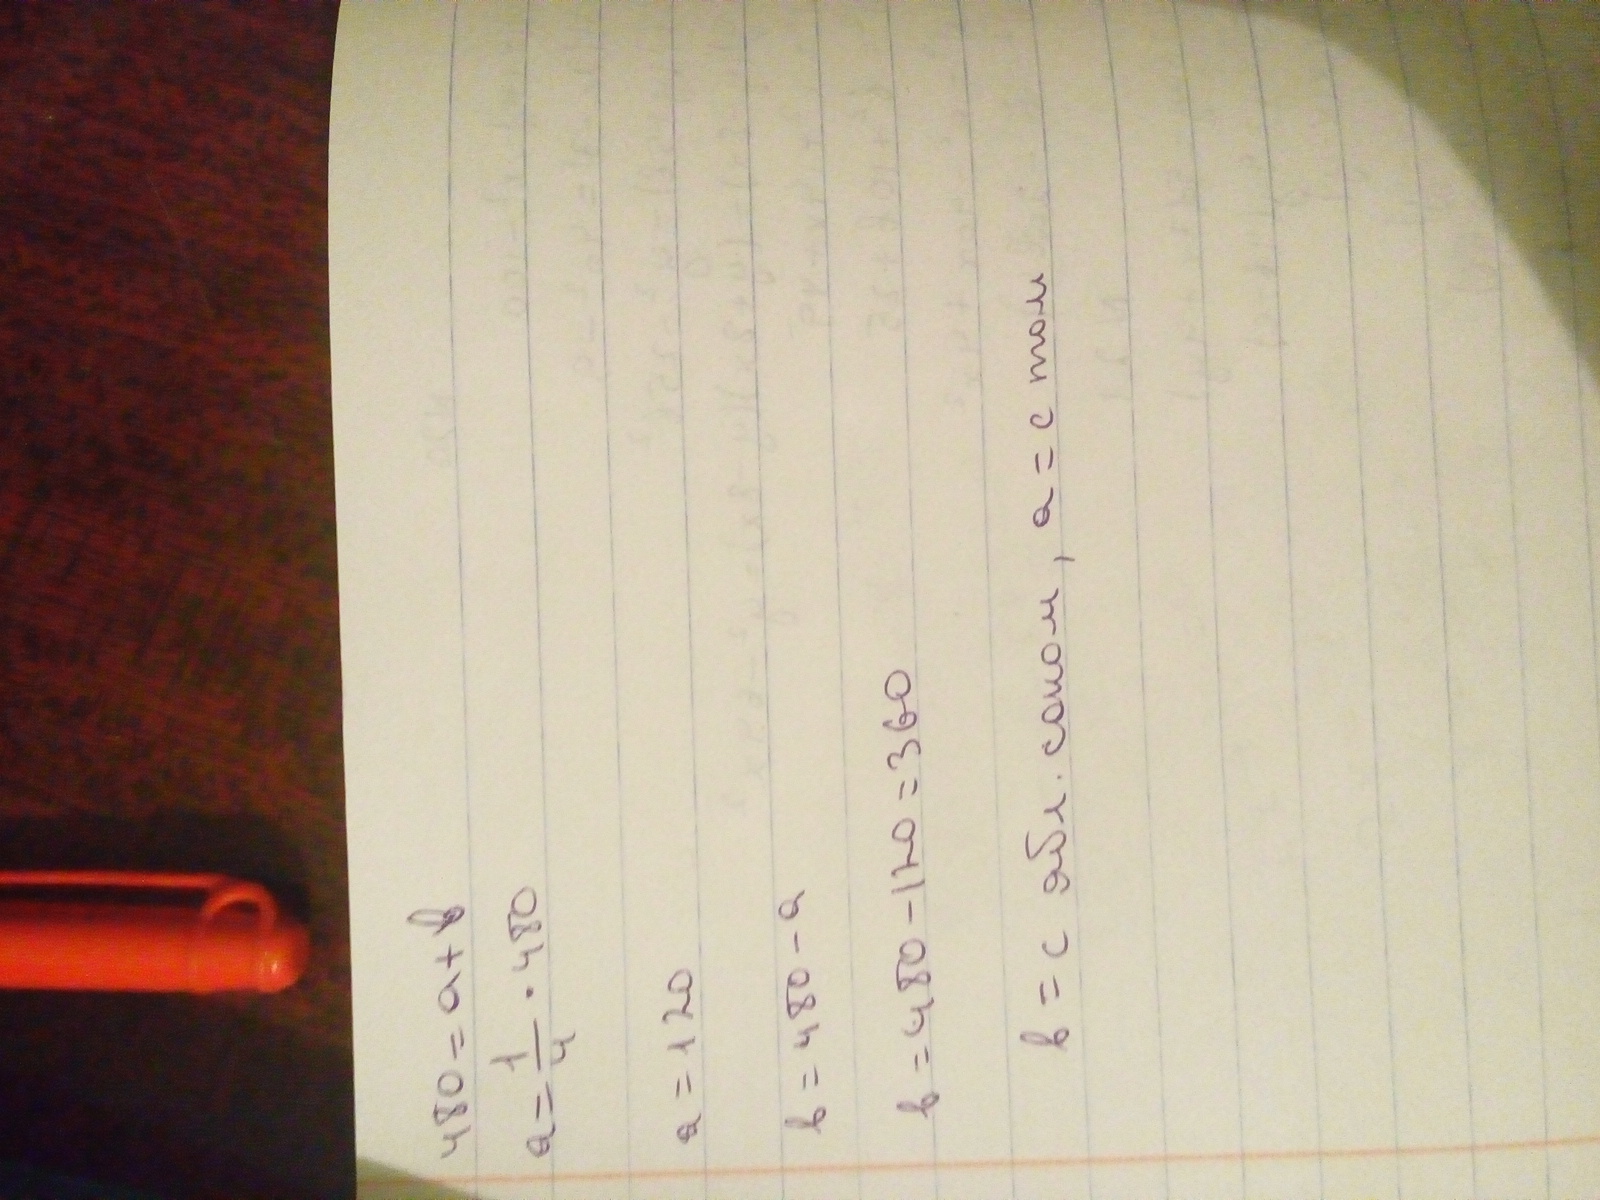 480 = a + b
a = 1/4 · 480
a = 120
b = 480 - a
b = 480 - 120 = 360
b = с ябл. соком, a = с том